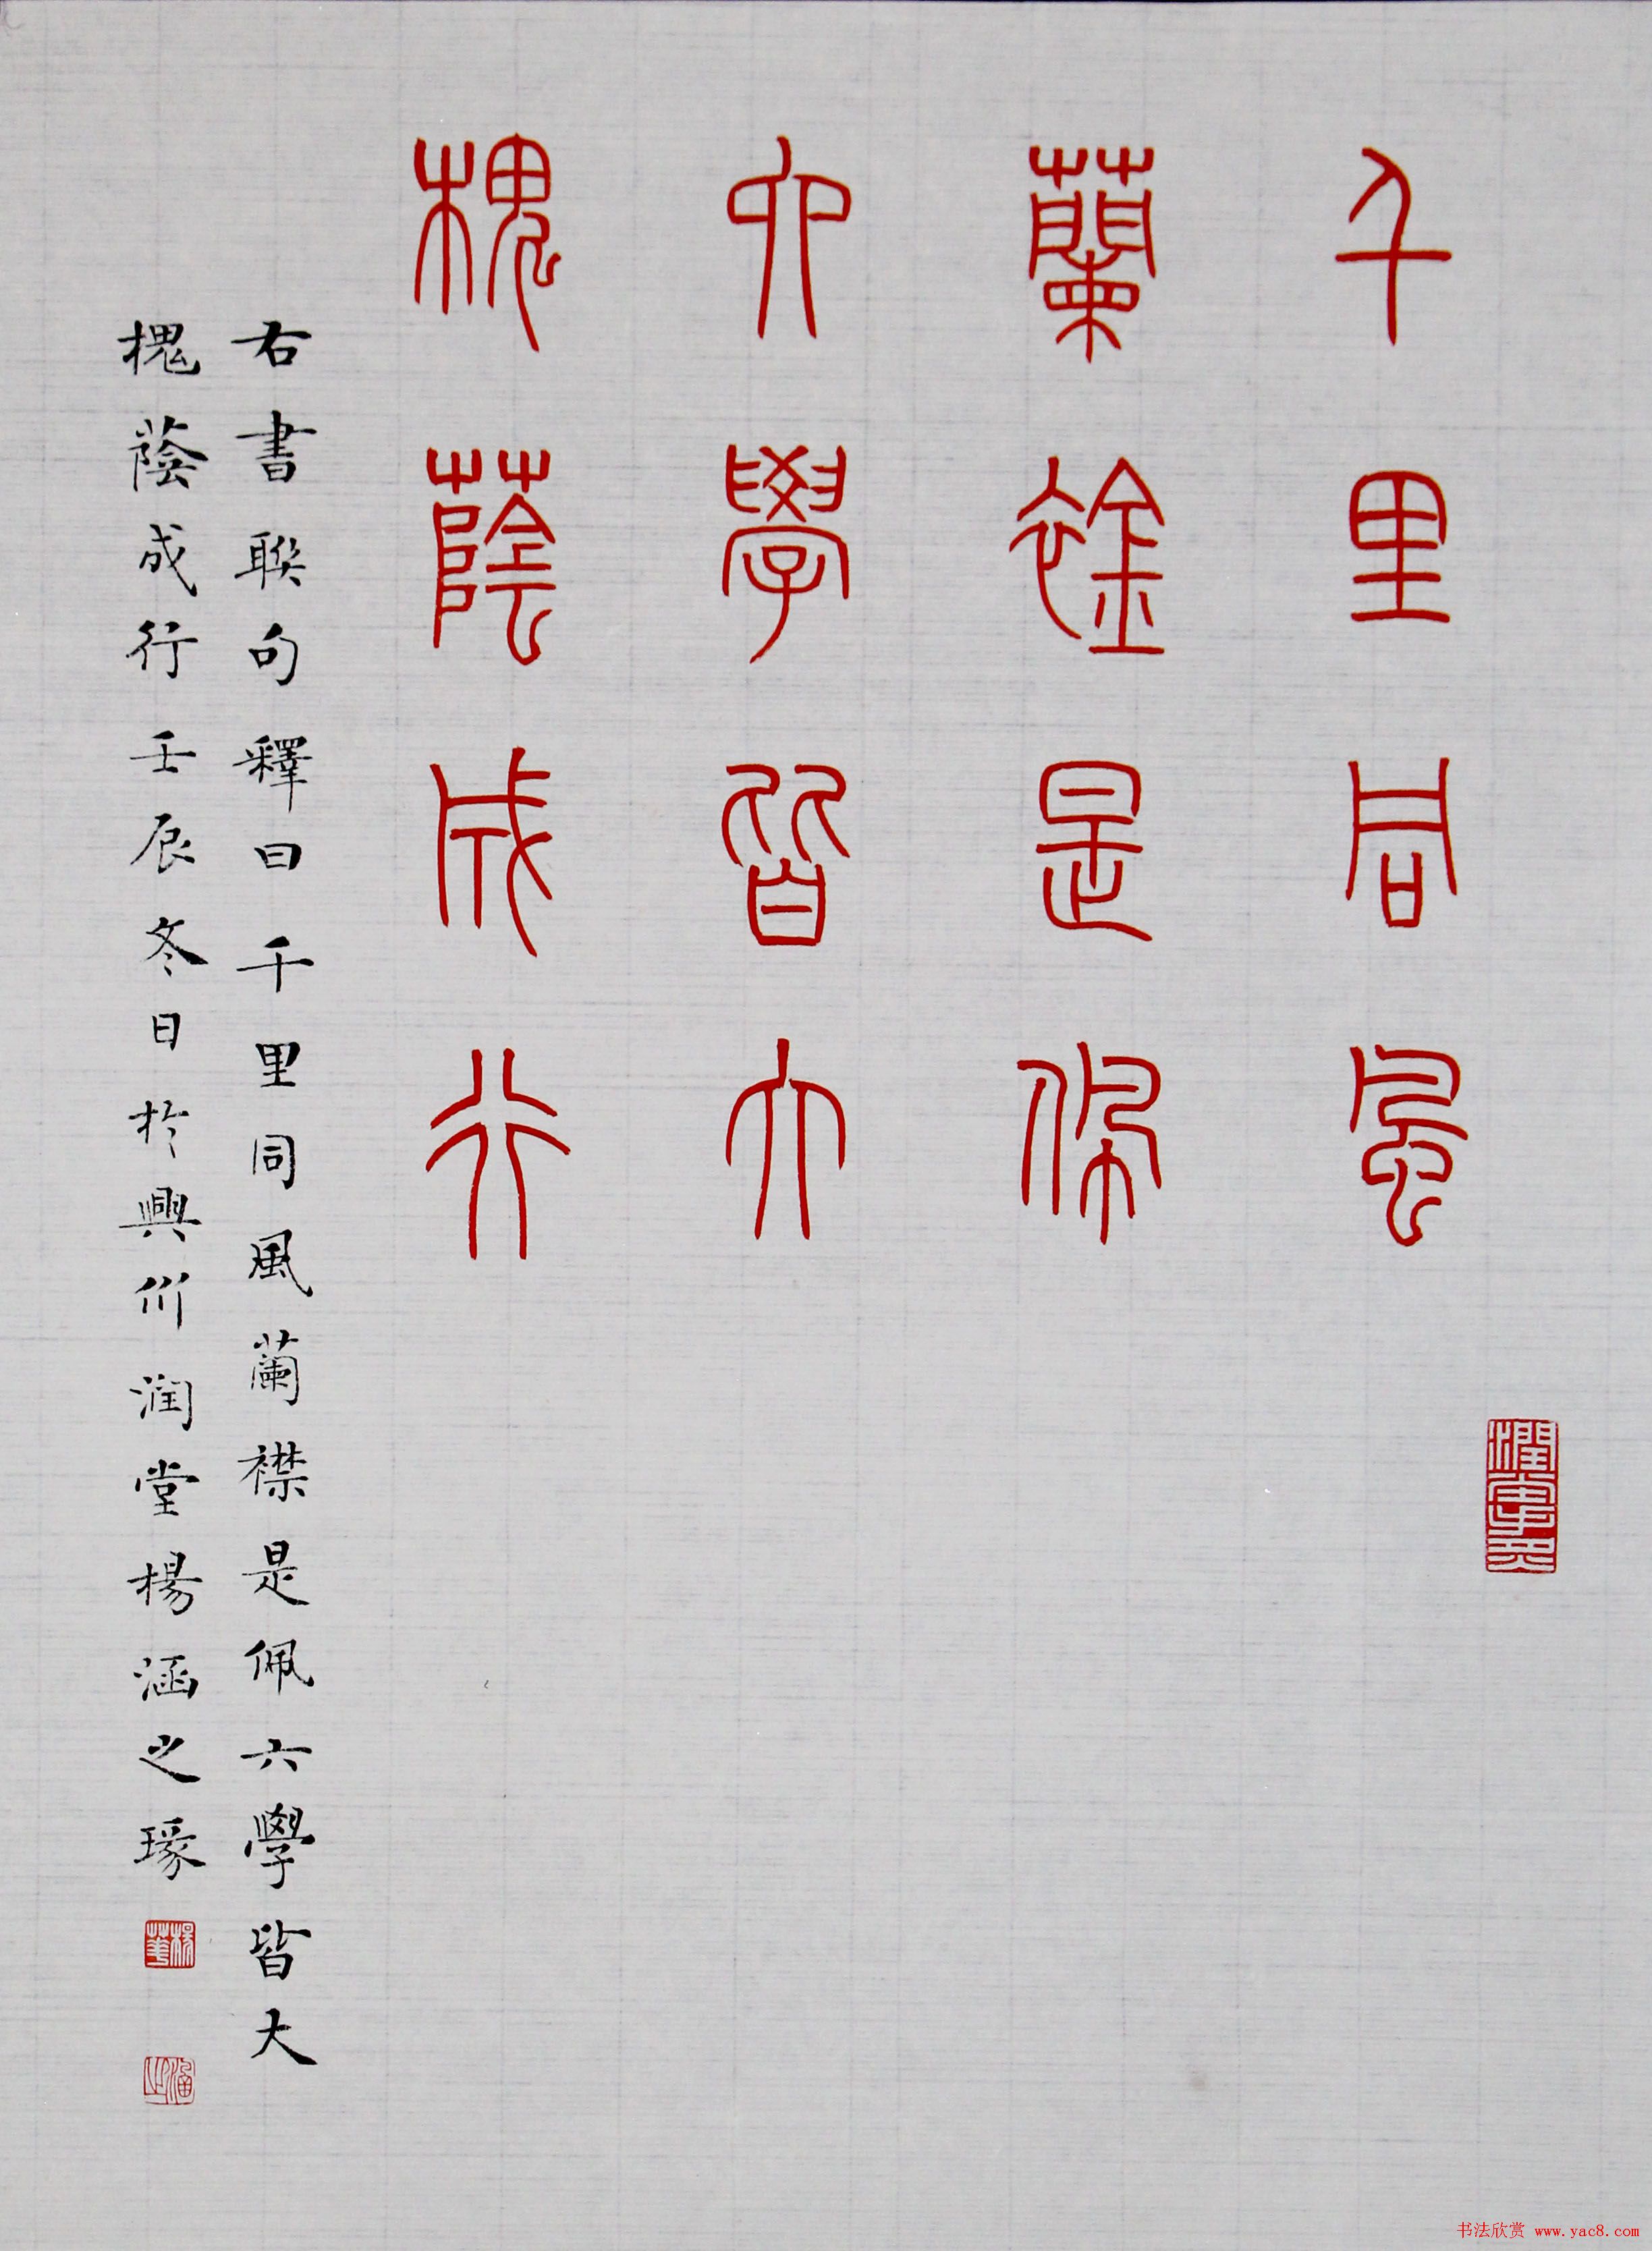 千里同風
蘭襟是佩
六學皆大
槐蔭成行
右書聯句釋曰千里同風蘭襟是佩六學皆大
槐蔭成行壬辰冬日於興州潤堂楊涵之瑑
书法欣赏 www.yac8.com